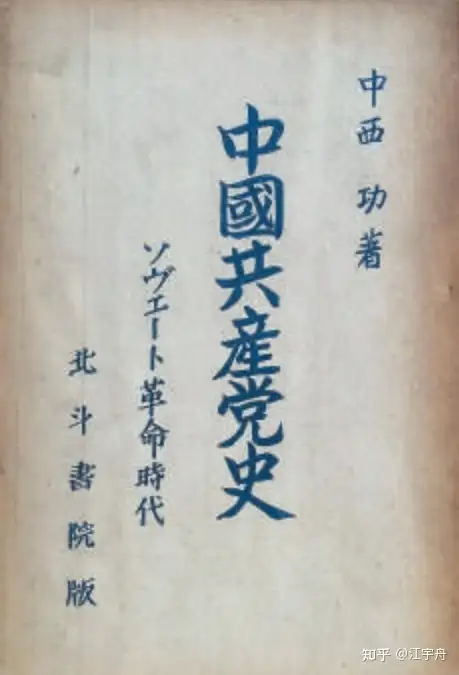 中西 功著
中國共産党史
ソヴエート革命時代
北斗書院版
知乎 @江宇舟